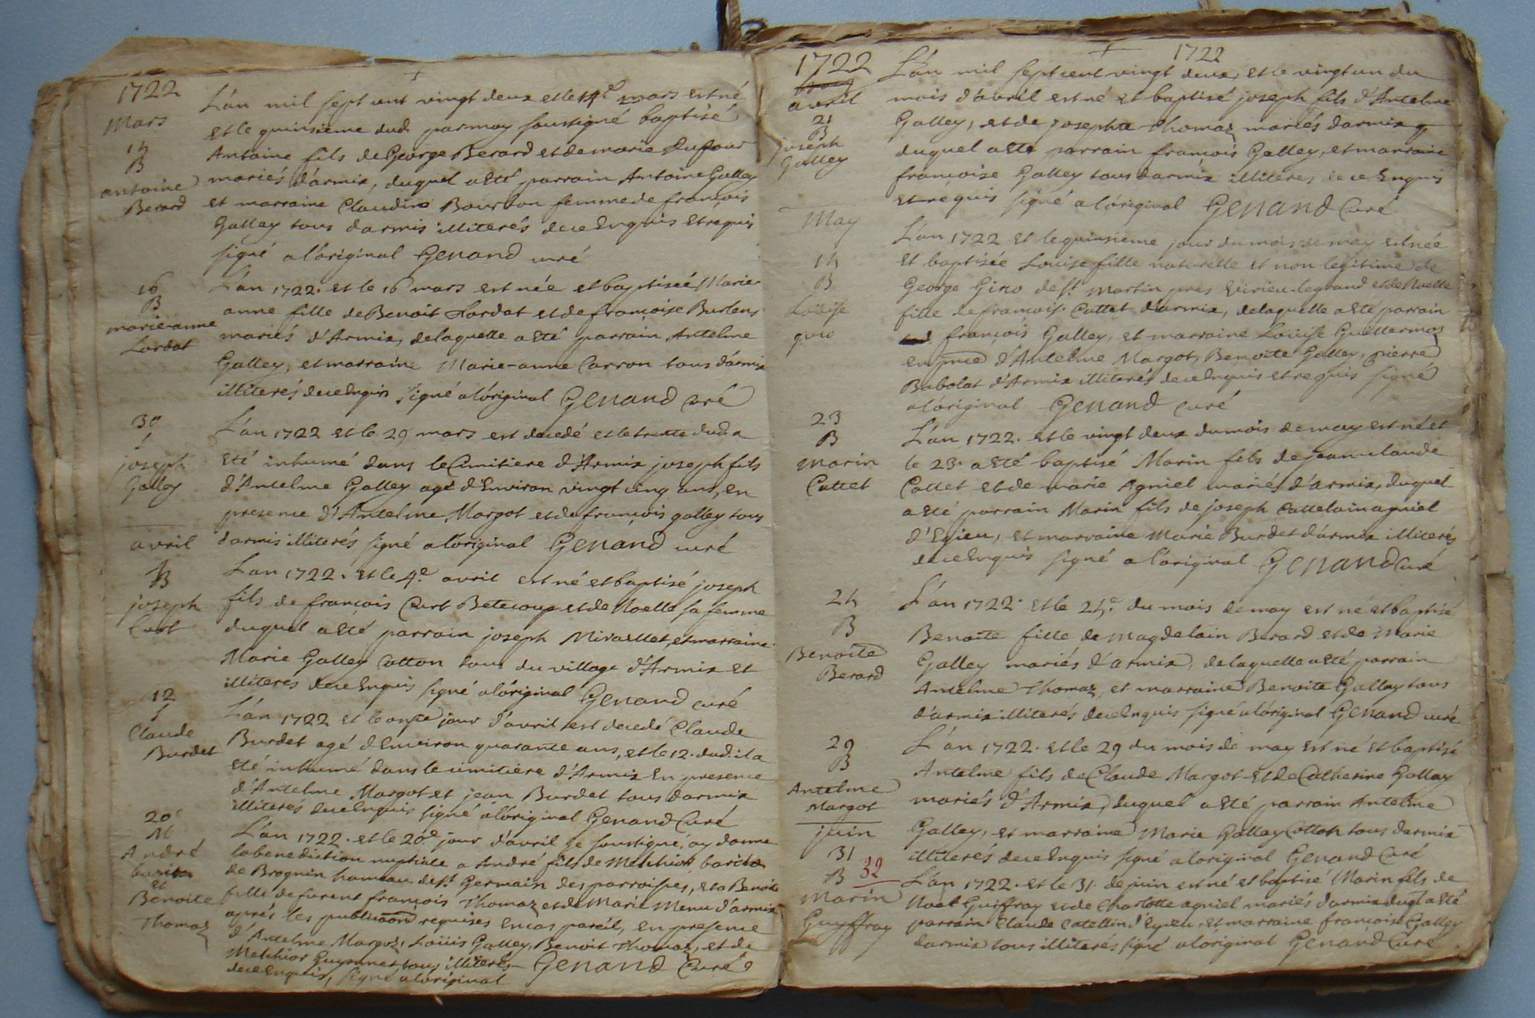 1722
L'an mil sept cent vingt deux et le 14e mars est né
Mars
et le quinsieme dud. par moy soussigné baptisé
14
B
Antoine fils de George Berard et de marie Dufour
antoine
Berard
mariés d'armix, duquel a eté parrain Antoine Galley
et marraine Claudine Bourdon femme de françois
Galley tous d'armix illiterés de ce Enquis et requis
signé a l'original Genand curé
16
B
marie-anne
Lardat
L'an 1722. et le 16 mars est née et baptisée Marie-
anne fille de Benoit Lardat et de françoise Burlens
mariés d'Armix, de laquelle a eté parrain Antelme
Galley, et marraine Marie-anne Carron tous d'armix
illiterés de ce Enquis signé a l'original Genand curé
30
joseph
Galley
L'an 1722 et le 29 mars est decedé et le trente dud. a
eté inhumé dans le Cimitiere d'Armix joseph fils
d'Antelme Galley agé d'Environ vingt cinq ans, en
presence d'Antelme Margot et de françois galley tous
d'armix illiterés signé a l'original Genand curé
avril
4
B
joseph
L'an 1722. et le 4e avril est né et baptisé joseph
fils de françois Curt Betecoup et de Noelle sa femme
duquel a eté parrain joseph Miraillet, et marraine
Marie Galley Cotton tous du village d'Armix et
illiterés de ce Enquis signé a l'original Genand curé
12
Claude
Burdet
L'an 1722 et le onze jour d'avril est decedé Claude
Burdet agé d'Environ quarante ans, et le 12. dud. il a
eté inhumé dans le cimitiere d'Armix En presence
d'Antelme Margot et jean Burdet tous d'armix
illiterés de ce Enquis signé a l'original Genand Curé
20e
M
André
et
Benoite
Thomaz
L'an 1722. et le 20e jour d'avril je soussigné, ay donné
la benediction nuptiale a André fils de Melchior
de Brognin hameau de St. Germain des parroisses, et a Benoite
fille de furent françois Thomaz et de Marie Menu d'armix
après les publications requises En cas pareil, en presence
d'Antelme Margot, Loüis Galley, Benoit Thomaz, et de
Melchior Guynnet tous illiterés Genand Curé
de ce Enquis, signé a l'original
1722
1722
L'an mil sept cent vingt deux, et le vingt un du
avril
21
B
joseph
Galley
mois d'avril est né et baptisé joseph fils d'Antelme
Galley, et de josephte Thomaz mariés d'armix
duquel a eté parrain françois Galley, et marraine
françoise Galley tous d'armix illiterés, de ce Enquis
et requis signé a l'original Genand Curé
May
14
B
Louise
giro
L'an 1722 et le quinsieme jour du mois de may est née
et baptisée Louise fille naturelle et non legitime de
George Giro de St. Martin près Virieu le grand et de Noelle
fille de françois Cuttet d'armix, de laquelle a eté parrain
françois Galley, et marraine Louise Guillermoz
en pnce d'Antelme Margot, Benoite Galley, pierre
Babolat d'Armix illiterés de ce Enquis et requis signé
a l'original Genand curé
23
B
Marin
Cuttet
L'an 1722. et le vingt deux du mois de may est né et
le 23. a eté baptisé Marin fils de jean claude
Cuttet et de marie Agniel mariés d'armix, duquel
a eté parrain Marin fils de joseph Cattelain agniel
d'Eyieu, et marraine Marie Burdet d'armix illiterés
de ce Enquis signé a l'original Genand Curé
24
B
Benoite
Berard
L'an 1722. et le 24e du mois de may est né et baptisé
Benoite fille de Magdelain Berard et de Marie
Galley mariés d'armix, de laquelle a eté parrain
Antelme Thomaz, et marraine Benoite Galley tous
d'armix illiterés de ce Enquis signé a l'original Genand curé
29
B
Antelme
Margot
L'an 1722. et le 29 du mois de may est né et baptisé
Antelme fils de Claude Margot et de Catherine Galley
mariés d'Armix, duquel a eté parrain Antelme
Galley, et marraine Marie Galley Cotton tous d'armix
illiterés de ce Enquis signé a l'original Genand Curé
juin
31
B 32
Marin
Guyffray
L'an 1722. et le 31. de juin est né et baptisé Marin fils de
Noel Guiffray et de Charlotte agniel mariés d'armix duql. a eté
parrain Claude Catellin d'Eyieu, et marraine françoise Galley
d'armix tous illiterés signé a l'original Genand Curé